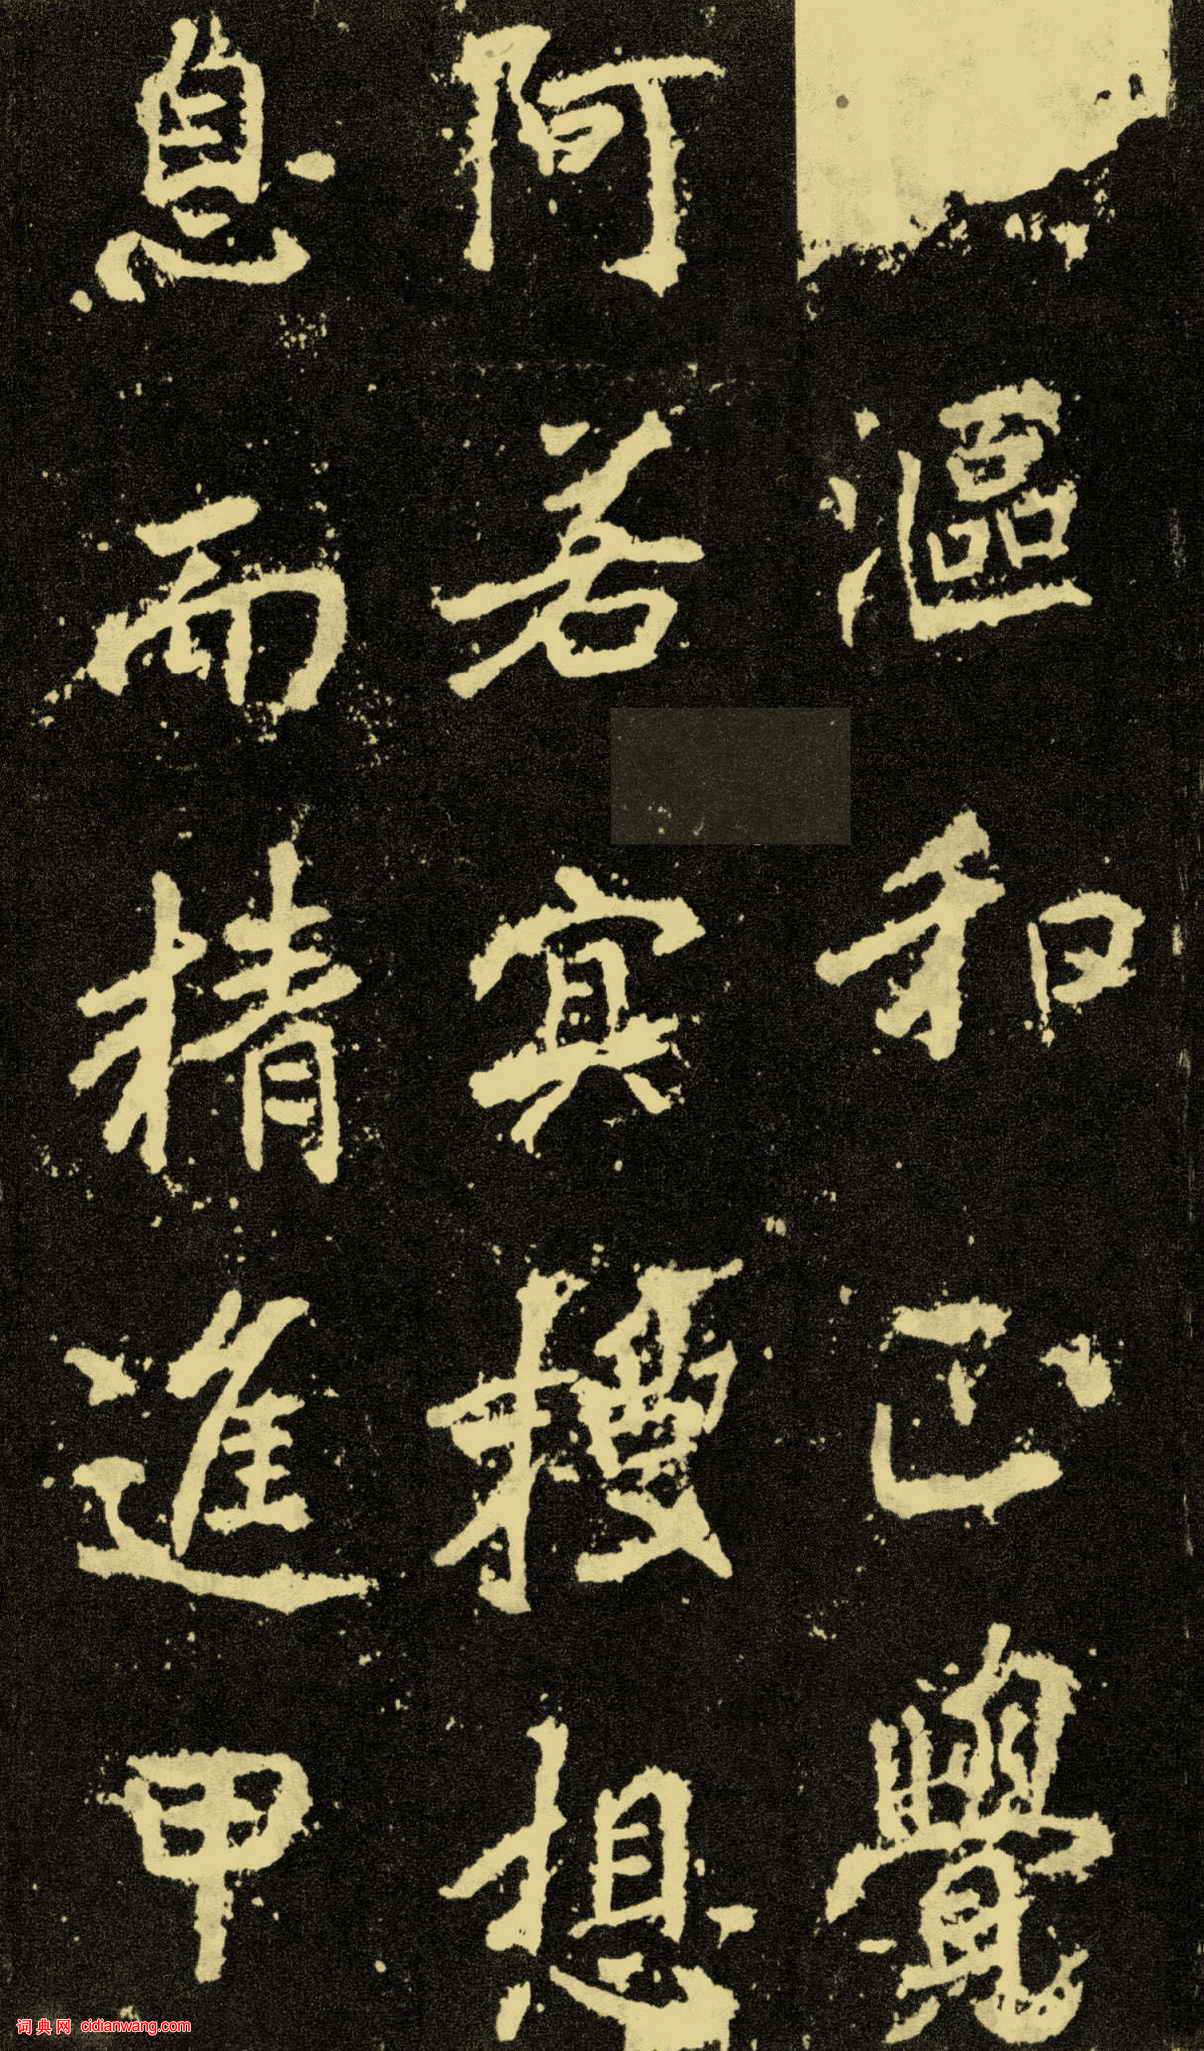 漚和正覺
阿若冥搜想
息而精進甲
词典网 cidianwang.com